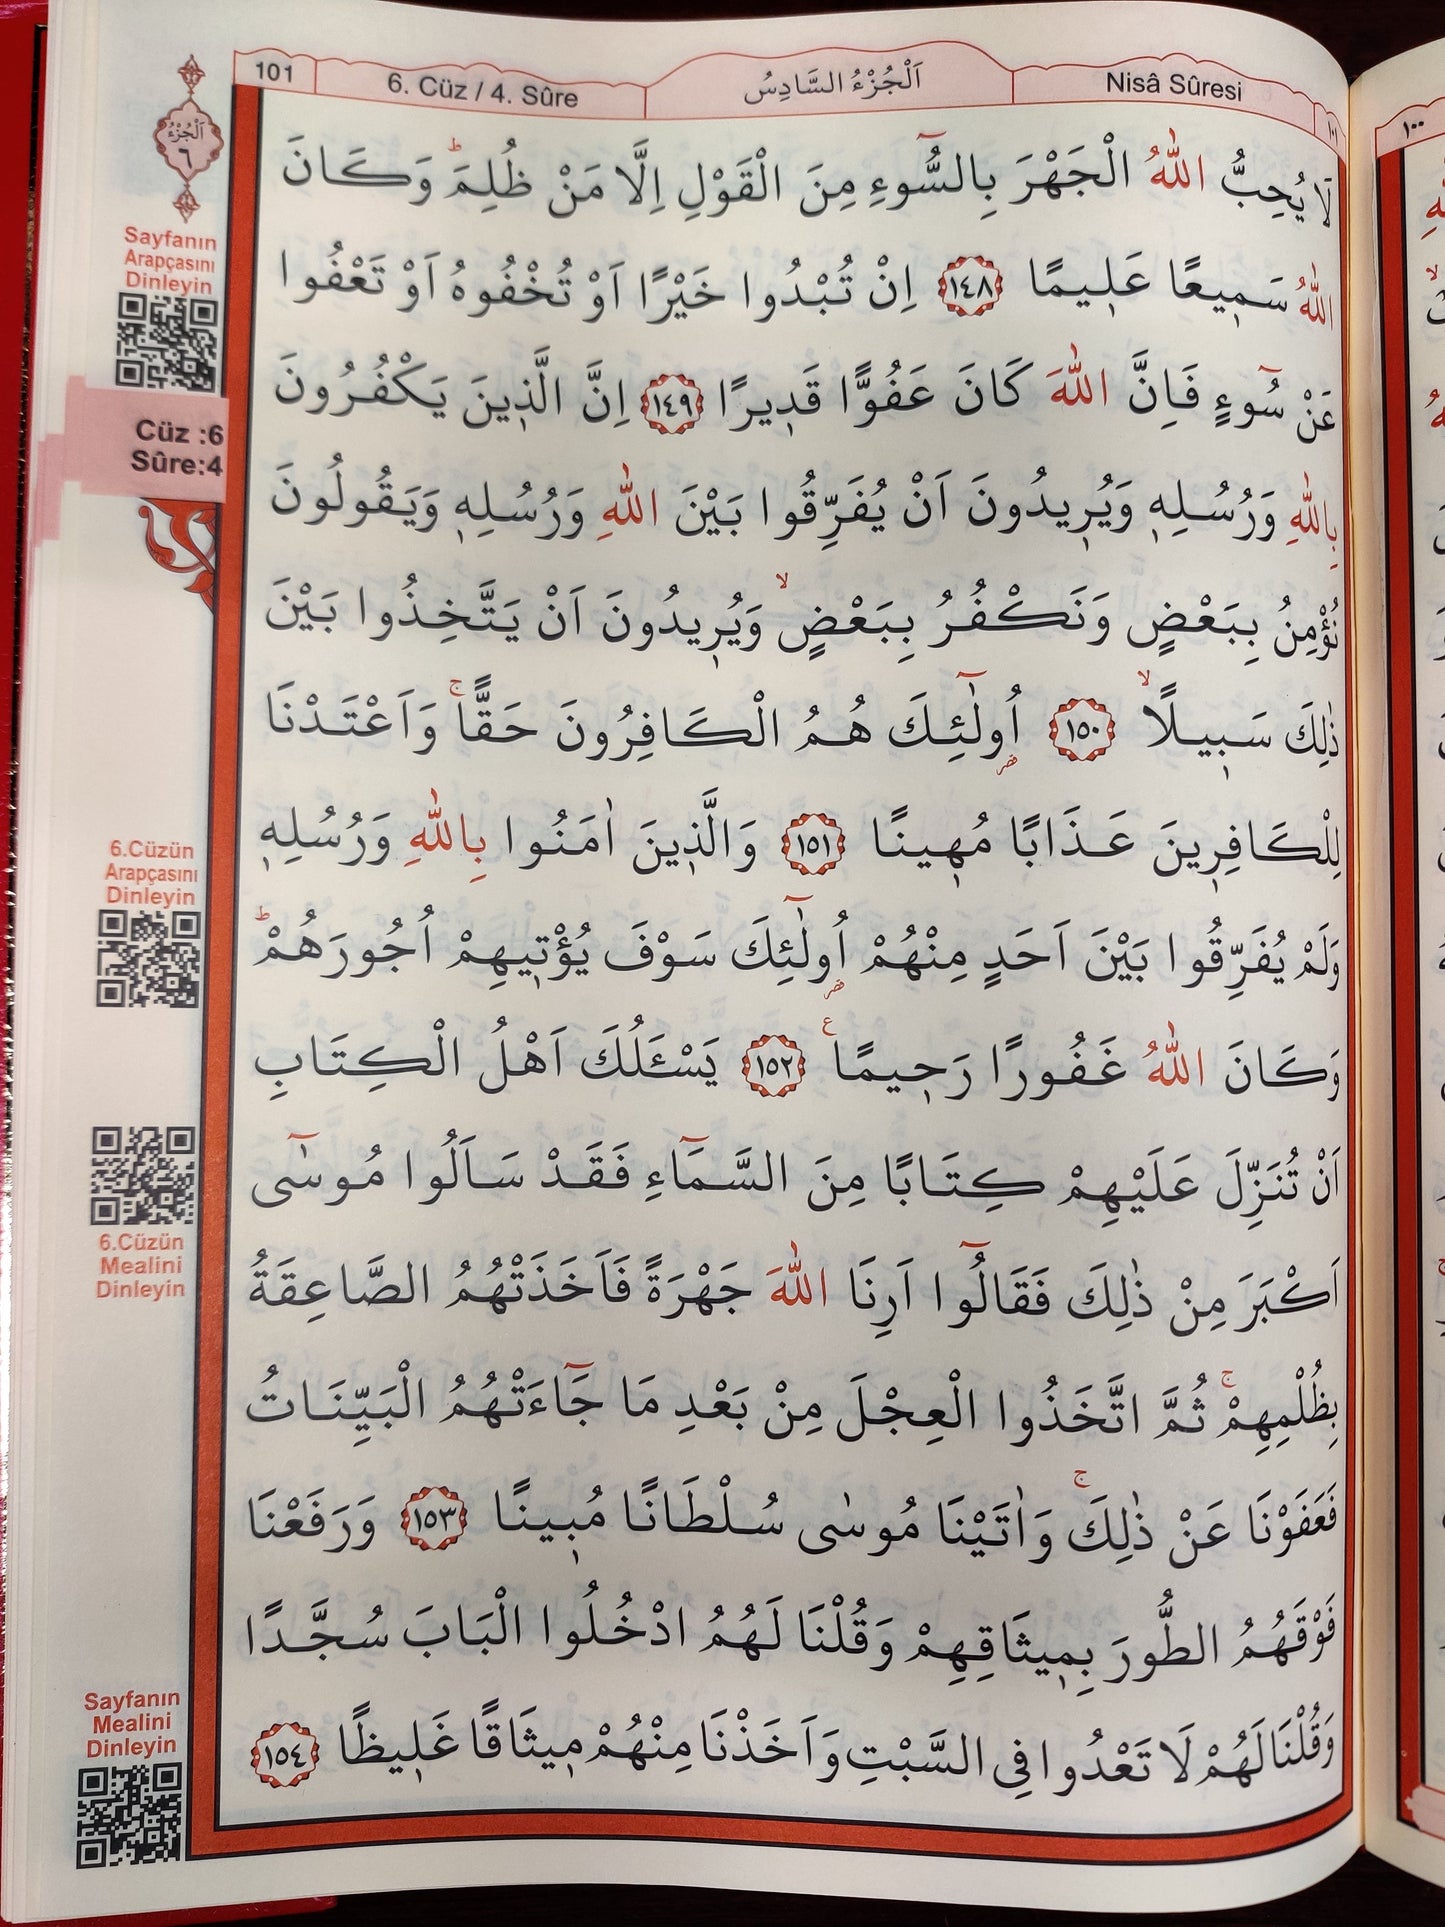 101
6. Cüz / 4. Sûre
اَلْجُزْءُ السَّادِسُ
Nisâ Sûresi
١٠١
١٠٠
اَلْجُزْءُ
٦
Sayfanın
Arapçasını
Dinleyin
Cüz :6
Sûre:4
6.Cüzün
Arapçasını
Dinleyin
6.Cüzün
Mealini
Dinleyin
Sayfanın
Mealini
Dinleyin
لَا يُحِبُّ اللّٰهُ الْجَهْرَ بِالسُّٓوءِ مِنَ الْقَوْلِ اِلَّا مَنْ ظُلِمَؕ وَكَانَ
اللّٰهُ سَمٖيعًا عَلٖيمًا ﴿١٤٨﴾ اِنْ تُبْدُوا خَيْرًا اَوْ تُخْفُوهُ اَوْ تَعْفُوا
عَنْ سُٓوءٍ فَاِنَّ اللّٰهَ كَانَ عَفُوًّا قَدٖيرًا ﴿١٤٩﴾ اِنَّ الَّذٖينَ يَكْفُرُونَ
بِاللّٰهِ وَرُسُلِهٖ وَيُرٖيدُونَ اَنْ يُفَرِّقُوا بَيْنَ اللّٰهِ وَرُسُلِهٖ وَيَقُولُونَ
نُؤْمِنُ بِبَعْضٍ وَنَكْفُرُ بِبَعْضٍۙ وَيُرٖيدُونَ اَنْ يَتَّخِذُوا بَيْنَ
ذٰلِكَ سَبٖيلًاۙ ﴿١٥٠﴾ اُو۬لٰٓئِكَ هُمُ الْكَافِرُونَ حَقًّاۚ وَاَعْتَدْنَا
لِلْكَافِرٖينَ عَذَابًا مُهٖينًا ﴿١٥١﴾ وَالَّذٖينَ اٰمَنُوا بِاللّٰهِ وَرُسُلِهٖ
وَلَمْ يُفَرِّقُوا بَيْنَ اَحَدٍ مِنْهُمْ اُو۬لٰٓئِكَ سَوْفَ يُؤْتٖيهِمْ اُجُورَهُمْؕ
وَكَانَ اللّٰهُ غَفُورًا رَحٖيمًا ع ﴿١٥٢﴾ يَسْـَٔلُكَ اَهْلُ الْكِتَابِ
اَنْ تُنَزِّلَ عَلَيْهِمْ كِتَابًا مِنَ السَّمَٓاءِ فَقَدْ سَاَلُوا مُوسٰٓى
اَكْبَرَ مِنْ ذٰلِكَ فَقَالُٓوا اَرِنَا اللّٰهَ جَهْرَةً فَاَخَذَتْهُمُ الصَّاعِقَةُ
بِظُلْمِهِمْۚ ثُمَّ اتَّخَذُوا الْعِجْلَ مِنْ بَعْدِ مَا جَٓاءَتْهُمُ الْبَيِّنَاتُ
فَعَفَوْنَا عَنْ ذٰلِكَۚ وَاٰتَيْنَا مُوسٰى سُلْطَانًا مُبٖينًا ﴿١٥٣﴾ وَرَفَعْنَا
فَوْقَهُمُ الطُّورَ بِمٖيثَاقِهِمْ وَقُلْنَا لَهُمُ ادْخُلُوا الْبَابَ سُجَّدًا
وَقُلْنَا لَهُمْ لَا تَعْدُوا فِى السَّبْتِ وَاَخَذْنَا مِنْهُمْ مٖيثَاقًا غَلٖيظًا ﴿١٥٤﴾